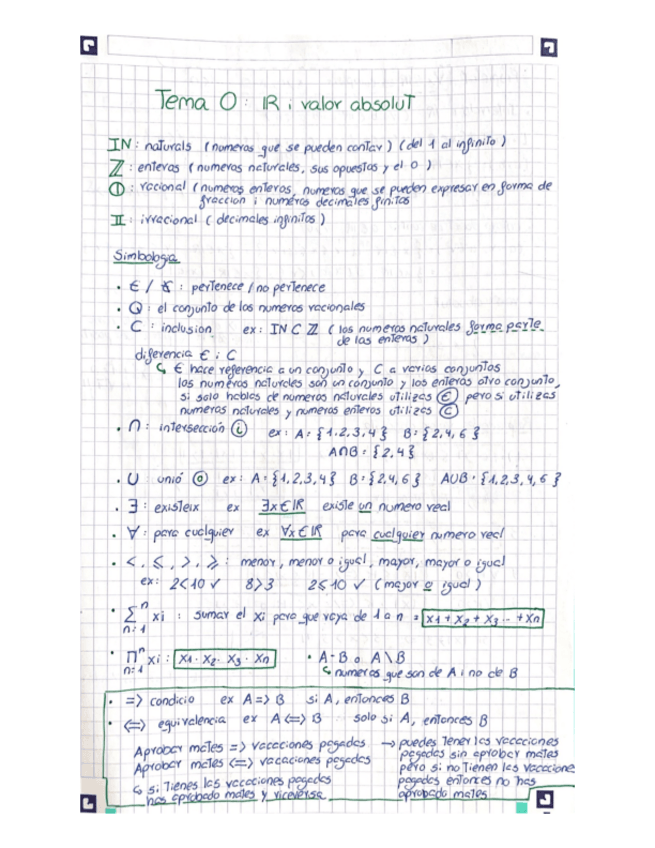 Tema 0: ℝ i valor absolut
ℕ: naturals (numeros que se pueden contar) (del 1 al infinito)
ℤ: enteras (numeros naturales, sus opuestos y el 0)
ℚ: racional (numeros enteros, numeros que se pueden expresar en forma de
fraccion i numeros decimales finitos
𝕀: irracional (decimales infinitos)
Simbologia
• ∈ / ∉ : pertenece / no pertenece
• Q: el conjunto de los numeros racionales
• ⊂ : inclusion ex: ℕ ⊂ ℤ (los numeros naturales forma parte
de las enteras)
diferencia ∈ i ⊂
↳ ∈ hace referencia a un conjunto y ⊂ a varios conjuntos
los numeros naturales son un conjunto y los enteros otro conjunto,
si solo hablas de numeros naturales utilizas ∈ pero si utilizas
numeros naturales y numeros enteros utilizas ⊂
• ∩ : intersección (i) ex: A = {1,2,3,4} B = {2,4,6}
A∩B = {2,4}
• ∪ : unió (o) ex: A = {1,2,3,4} B = {2,4,6} A∪B = {1,2,3,4,6}
• ∃ : existeix ex ∃x∈ℝ existe un numero real
• ∀ : para cualquier ex ∀x∈ℝ para cualquier numero real
• <, ≤, >, ≥ : menor, menor o igual, mayor, mayor o igual
ex: 2<10 ✓ 8>3 2≤10 ✓ (mayor o igual)
• Σ n n=1 xi : sumar el xi para que vaya de 1 a n = x1 + x2 + x3 ... + xn
• Π n n=1 xi : x1 · x2 · x3 · xn • A-B o A\B
↳ numeros que son de A i no de B
• => condicio ex A => B si A, entonces B
• <=> equivalencia ex A <=> B solo si A, entonces B
Aprobar mates => vacaciones pagadas → puedes tener las vacaciones
Aprobar mates <=> vacaciones pagadas pagadas sin aprobar mates
pero si no tienen las vacacione
↳ si tienes las vacaciones pagadas pagadas entonces no has
has aprobado mates y viceversa aprobado mates